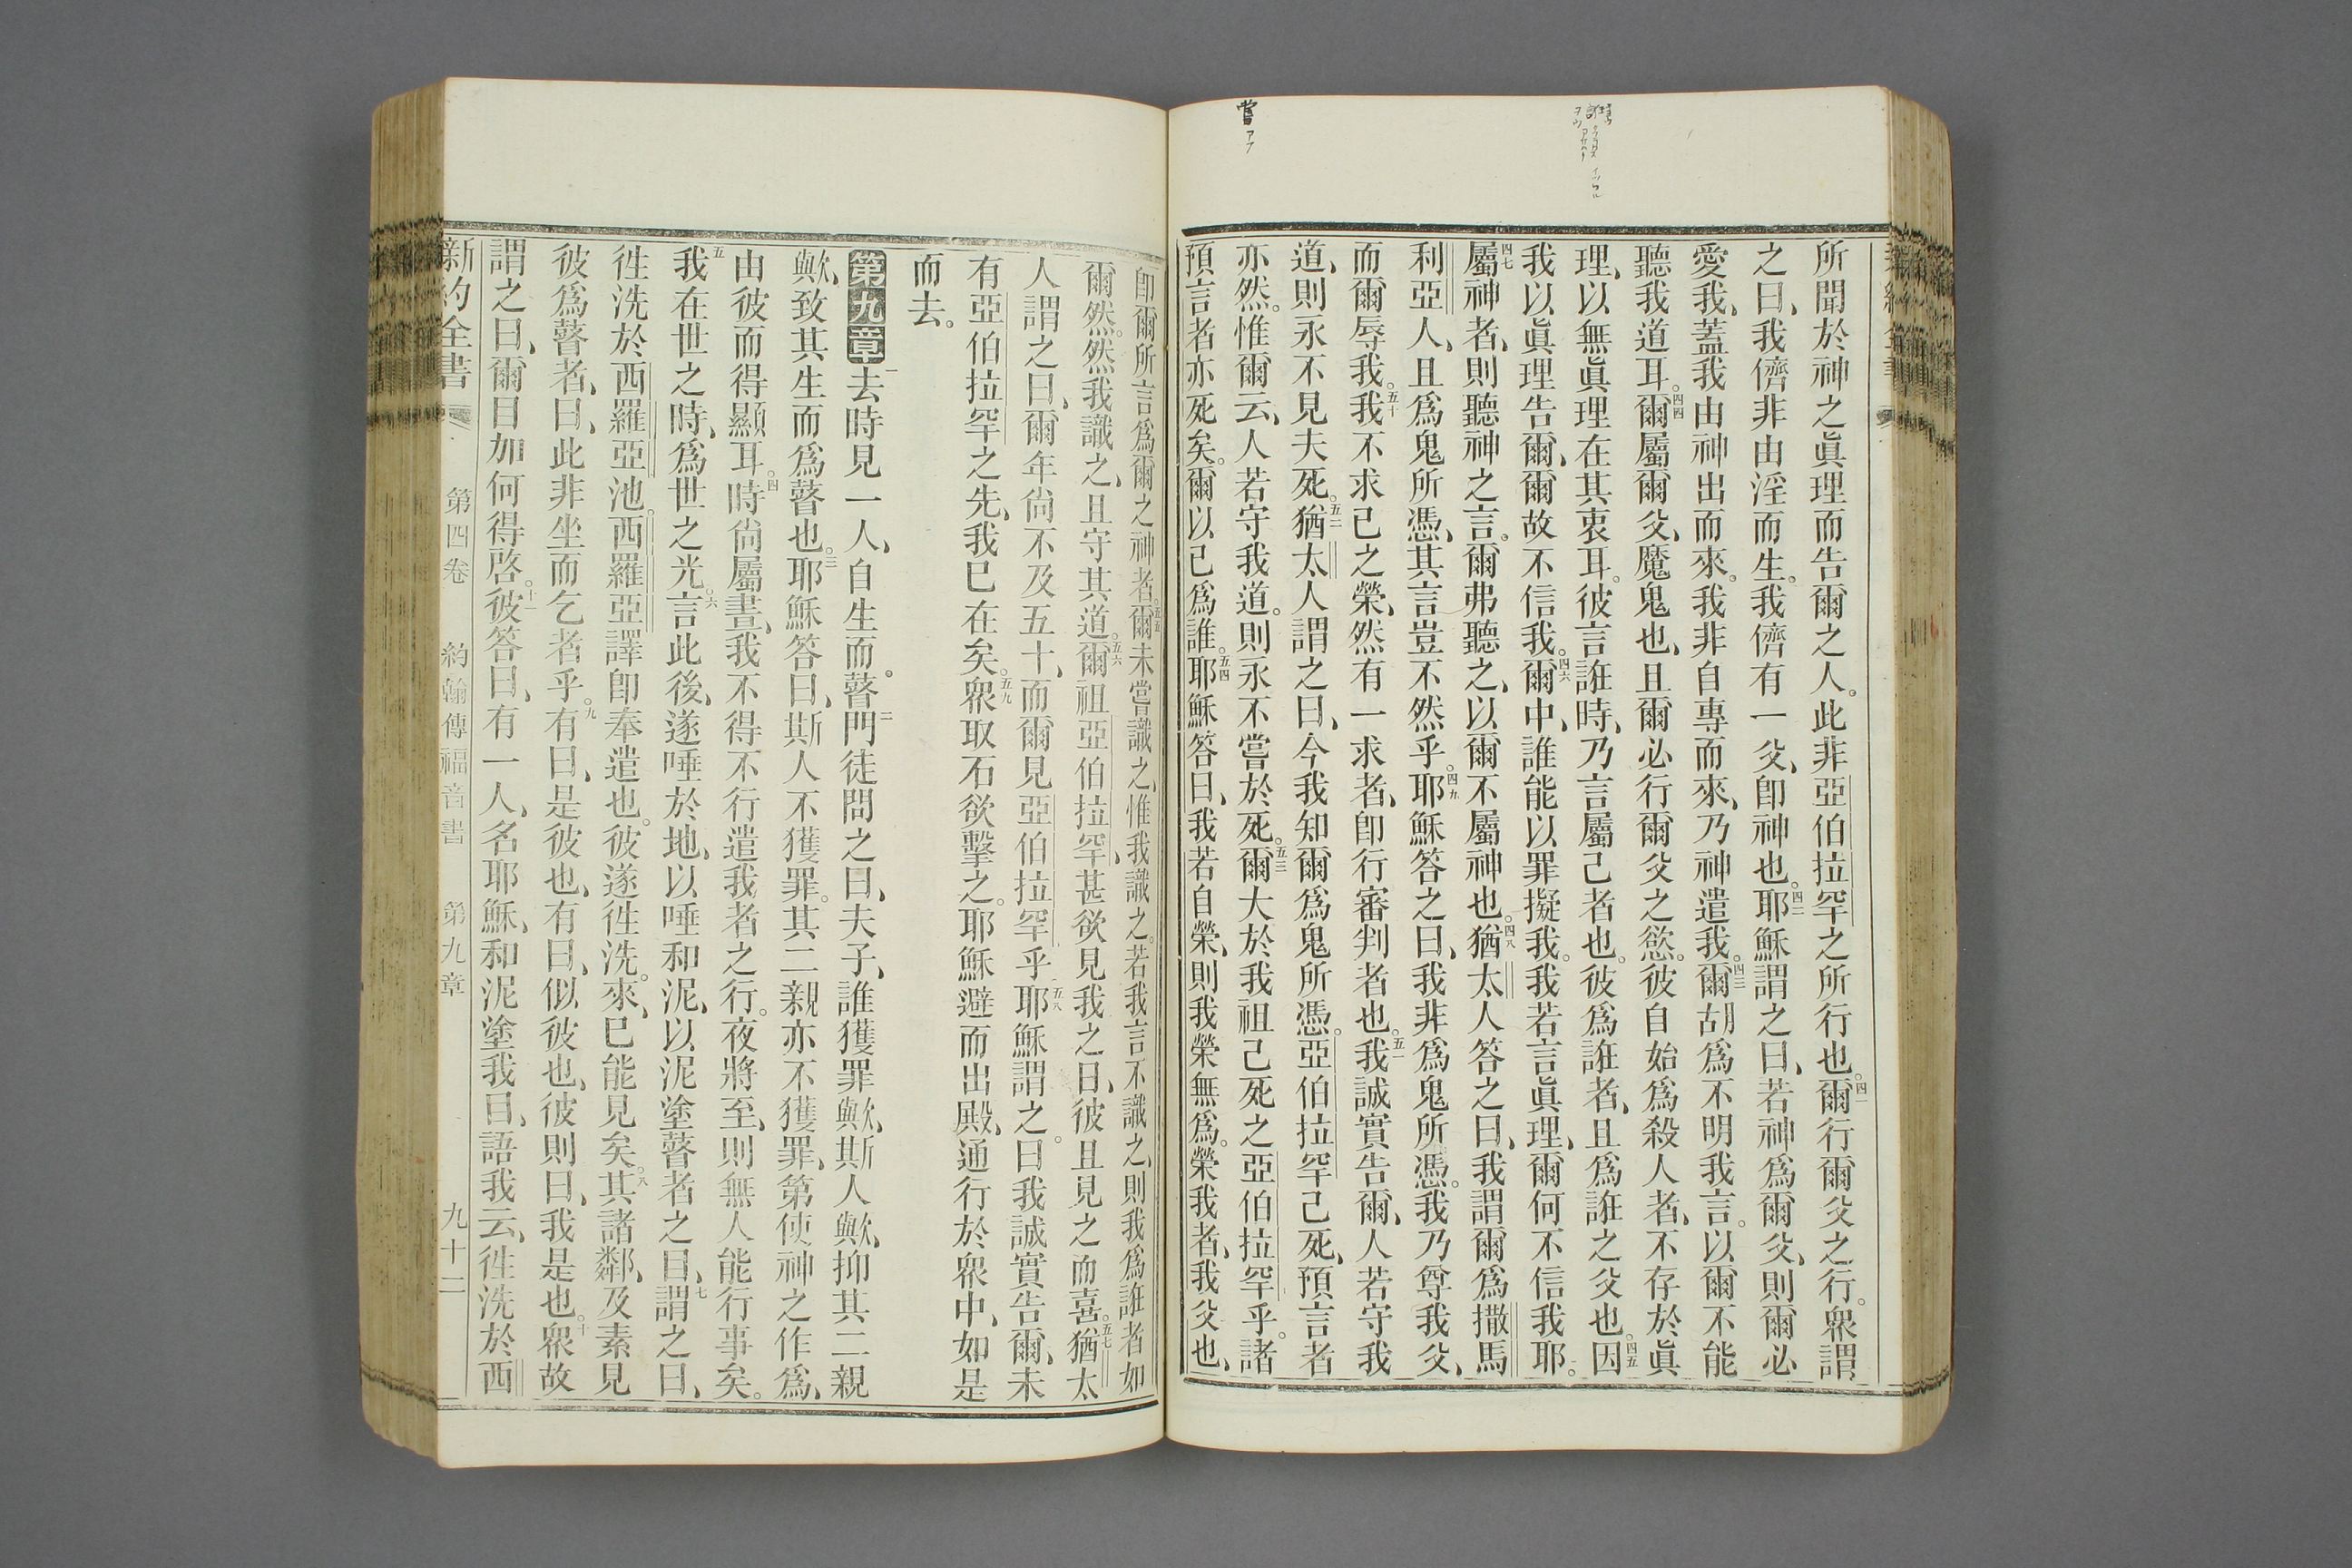 所聞於神之眞理而告爾之人。此非亞伯拉罕之所行也。四一爾行爾父之行。衆謂
之曰、我儕非由淫而生。我儕有一父、卽神也。四二耶穌謂之曰、若神爲爾父、則爾必
愛我、蓋我由神出而來。我非自專而來、乃神遣我。四三爾胡爲不明我言。以爾不能
聽我道耳。四四爾屬爾父、魔鬼也、且爾必行爾父之慾。彼自始爲殺人者、不存於眞
理、以無眞理在其衷耳。彼言誑時、乃言屬己者也。彼爲誑者、且爲誑之父也。四五因
我以眞理告爾、爾故不信我。四六爾中、誰能以罪擬我。我若言眞理、爾何不信我耶。
四七屬神者、則聽神之言。爾弗聽之、以爾不屬神也。四八猶太人答之曰、我謂爾爲撒馬
利亞人、且爲鬼所憑、其言豈不然乎。四九耶穌答之曰、我非爲鬼所憑。我乃尊我父、
而爾辱我。五十我不求己之榮、然有一求者、卽行審判者也。五一我誠實告爾、人若守我
道、則永不見夫死。五二猶太人謂之曰、今我知爾爲鬼所憑。亞伯拉罕己死、預言者
亦然。惟爾云、人若守我道。則永不嘗於死。五三爾大於我祖己死之亞伯拉罕乎。諸
預言者亦死矣。爾以己爲誰。五四耶穌答曰、我若自榮、則我榮無爲。榮我者、我父也、
嘗
卽爾所言爲爾之神者。五五爾未嘗識之、惟我識之。若我言不識之、則我爲誑者如
爾然。然我識之、且守其道。五六爾祖亞伯拉罕、甚欲見我之日、彼且見之而喜。五七猶太
人謂之曰、爾年尙不及五十、而爾見亞伯拉罕乎。五八耶穌謂之。曰我誠實告爾、未
有亞伯拉罕之先、我已在矣。五九衆取石欲擊之。耶穌避而出殿、通行於衆中、如是
而去。
第九章 一去時見一人、自生而瞽。二門徒問之曰、夫子、誰獲罪歟、斯人歟、抑其二親
歟、致其生而爲瞽也。三耶穌答曰、斯人不獲罪。其二親亦不獲罪、第使神之作爲、
由彼而得顯耳。四時尙屬晝、我不得不行遣我者之行。夜將至、則無人能行事矣。
五我在世之時、爲世之光。六言此後、遂唾於地、以唾和泥、以泥塗瞽者之目、七謂之曰、
徃洗於西羅亞池。西羅亞譯卽奉遣也。彼遂徃洗。來、已能見矣。八其諸鄰、及素見
彼爲瞽者、曰、此非坐而乞者乎。九有曰、是彼也、有曰、似彼也、彼則曰、我是也。十衆故
謂之曰、爾目如何得啓。十一彼答曰、有一人、名耶穌、和泥塗我目、語我云、徃洗於西
新約全書 第四卷 約翰傳福音書 第九章 九十二